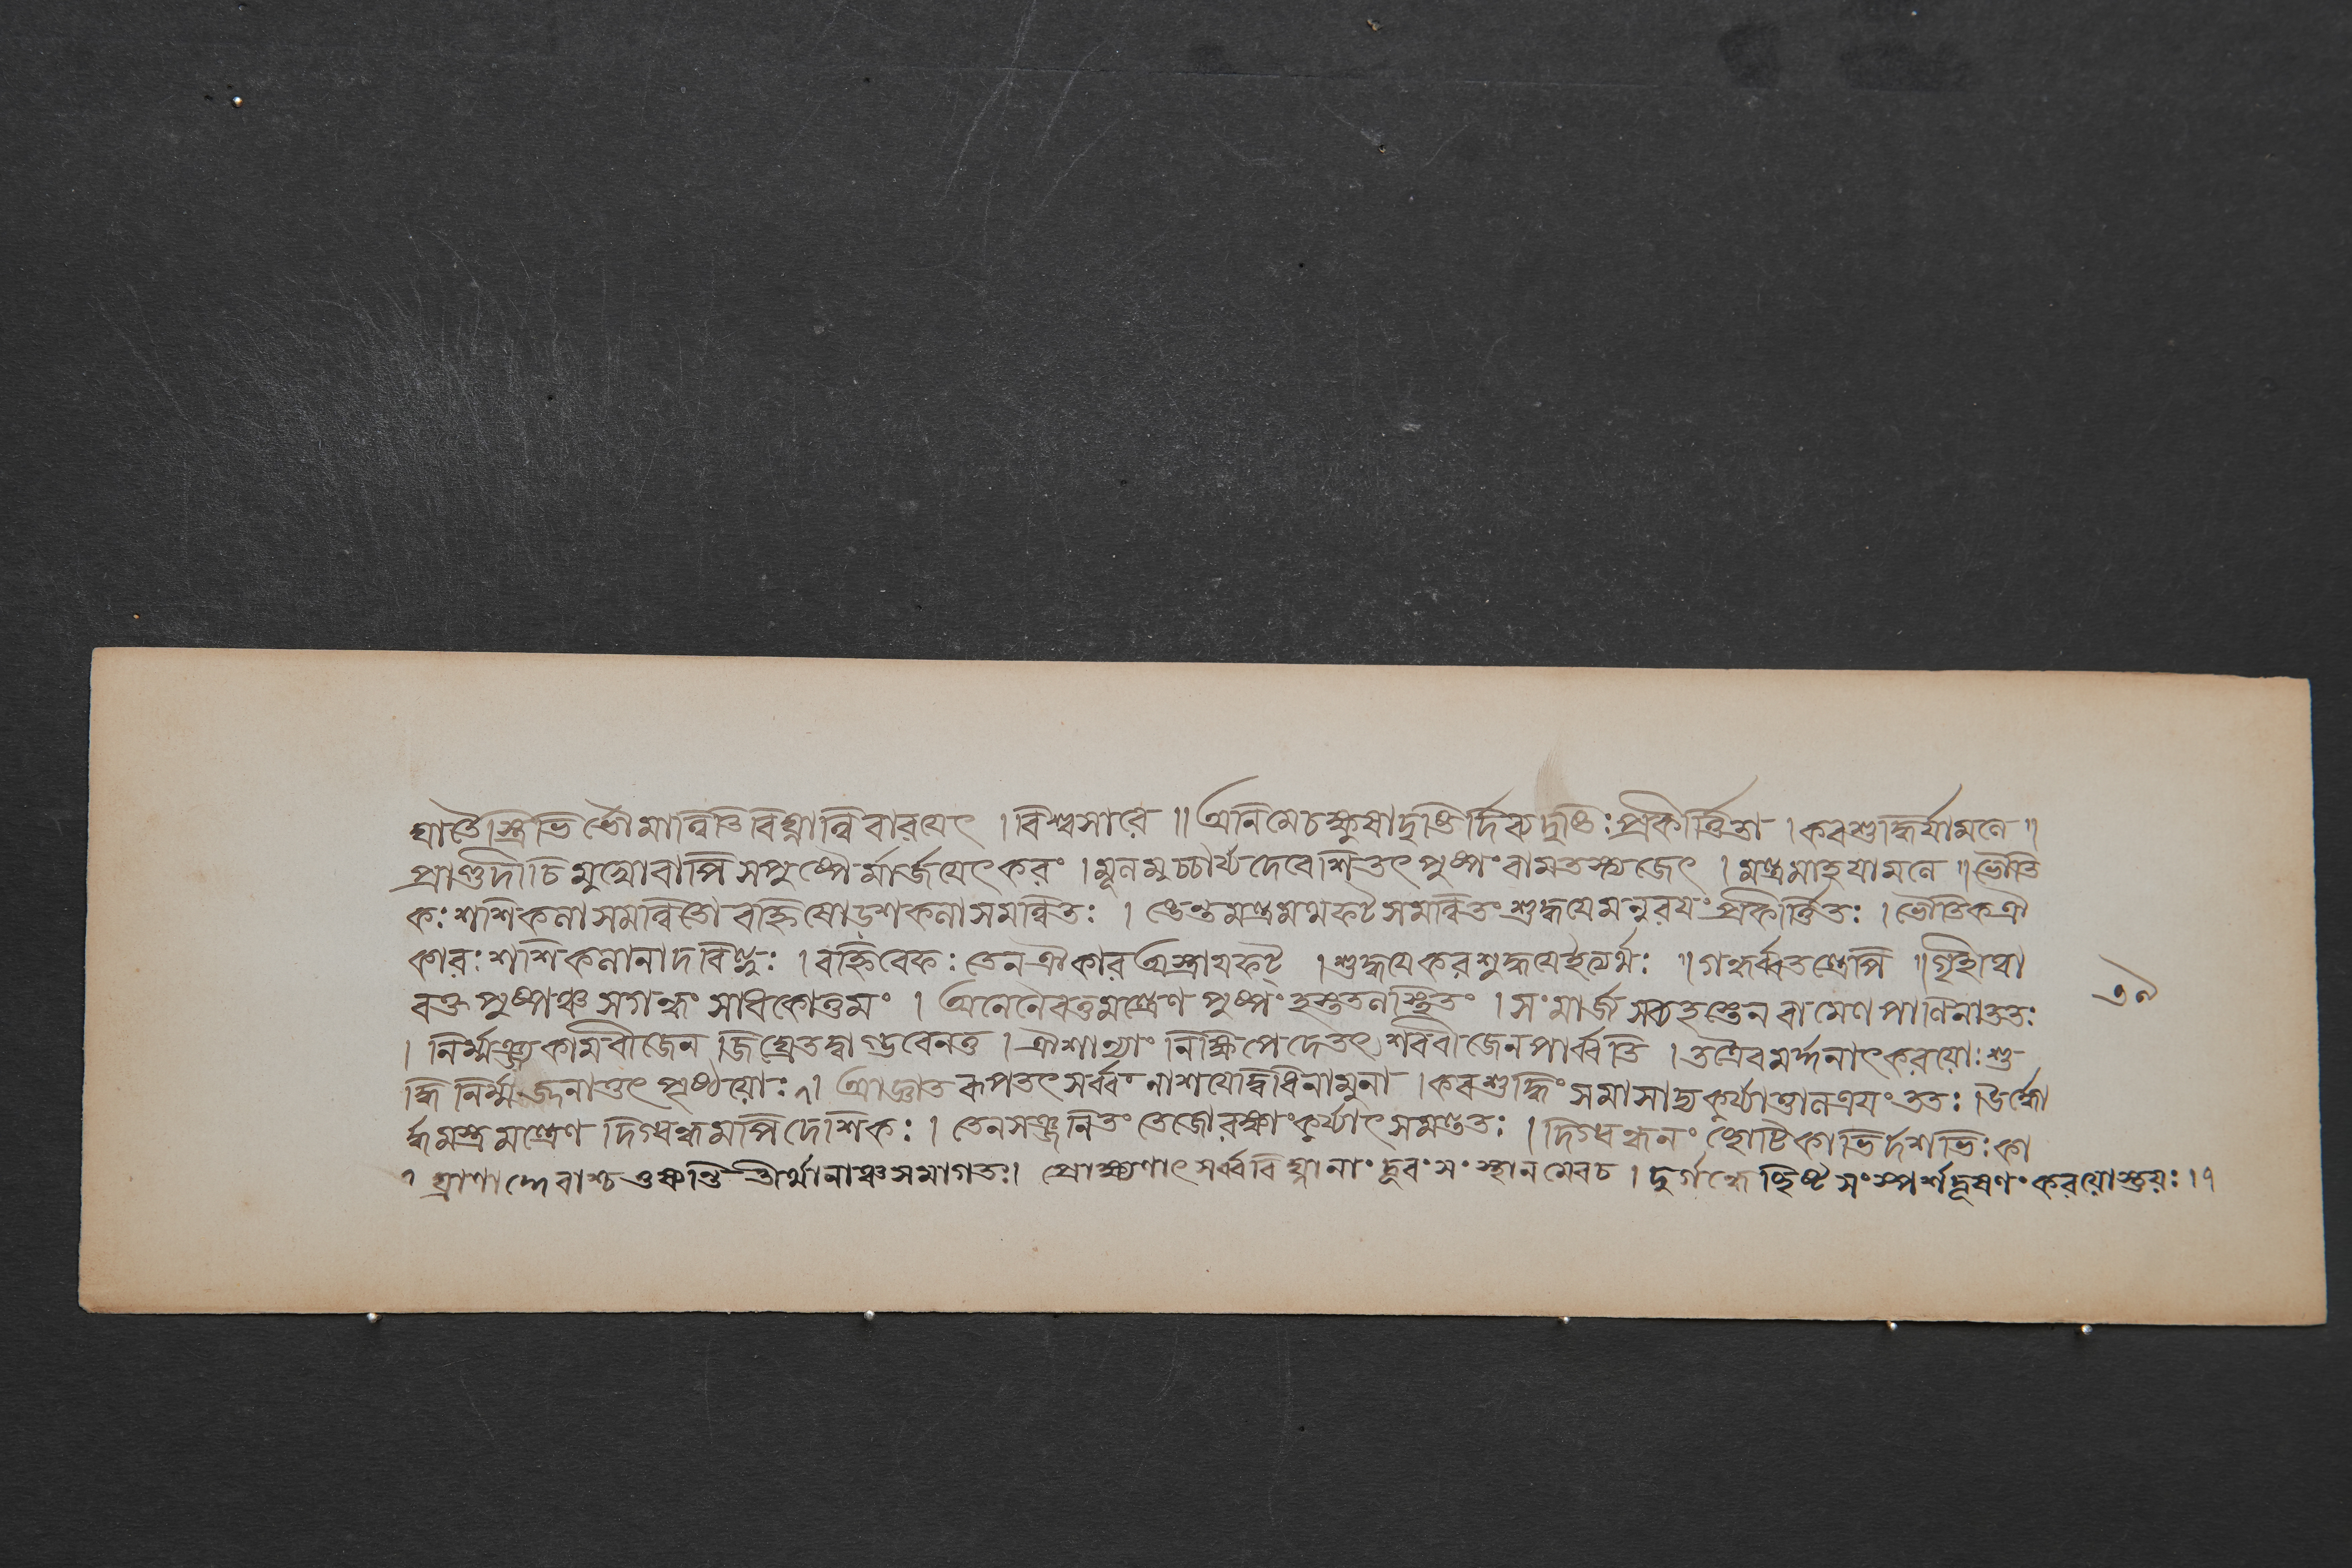 ঘাতৈস্ত্রিভি র্ভৌমান্বিতিবিঘ্নান্বিবারয়েৎ । বিশ্বসারে ॥ অনিমেচক্ষুষাদৃষ্টির্দিব্যদৃষ্টিঃ প্রকীর্ত্তিতা । করশুদ্ধির্যামলে ॥
প্রাগুদীচিমুখোবাপি সপুষ্পৈর্মার্জয়েৎকরং । মূলমুচ্চার্য্য দেবেশি তৎপুষ্পং বামতস্ত্যজেৎ । মন্ত্রমাহ যামলে ॥ ভৌতি
কঃ শশিকলাসমন্বিতো বহ্নিষোড়শকলাসমন্বিতঃ । ঙেন্তমন্ত্রমথফট্সমন্বিতং শুদ্ধয়েমনুরয়ং প্রকীর্ত্তিতঃ । ভৌতিকঐ
কারঃ শশিকলানাদবিন্দুঃ । বহ্নিরেফঃ তেন ঐকার অস্ত্রায়ফট্ । শুদ্ধয়েকরশুদ্ধয়েইত্যর্থঃ ॥ গন্ধর্ব্বতন্ত্রেপি ॥ গৃহিত্বা
রক্তপুষ্পঞ্চ সগন্ধং সাধকোত্তমং । অনেনৈবতুমন্ত্রেণ পুষ্পং হস্ততলস্থিতং । সংমার্জ সব্যহস্তেন বামেণ পাণিনাততঃ
। নির্ম্মঞ্ছ্যকামবীজেন জিঘ্রেতদ্বাগ্ভবেনতু । ঐশান্যাং নিক্ষিপেদেতৎ শক্তিবীজেনপার্ব্বতি । তত্রৈবমর্দ্দনাৎকরয়োঃ শু
দ্ধি নির্ম্মঞ্ছনাত্তৎ পৃষ্ঠয়োঃ ৭। আঘ্রাত রূপতৎ সর্ব্বং নাশয়োদ্বিধিনামুনা । করশুদ্ধিং সমাসাদ্য কুর্য্যাত্তালত্রয়ং ততঃ । ঊর্দ্ধো
র্দ্ধমস্ত্রমন্ত্রেণ দিগ্বন্ধমপিদেশিকঃ । তেনসঞ্জনিতং তেজোরক্ষাংকুর্য্যাৎ সমন্ততঃ । দিগ্বন্ধনং ছোটিকাভির্দশভিঃ কা
৭ ঘ্রাণাদ্দেবাশ্চ তীর্থানাঞ্চসমাগতঃ । প্রোক্ষণাৎ সর্ব্ববিঘ্নানাং দূরং সংস্থানমেবচ । দুর্গন্ধোচ্ছিষ্ট সংস্পর্শদূষণং করয়োস্তয়ঃ । ৭
৩৯